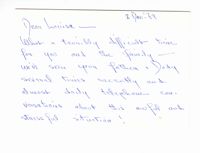 Dear Louise —
What a terribly difficult time
for you and the family —
we've seen your father & Dody
several times recently and
almost daily telephone con-
versations about this awful and
stressful situation!